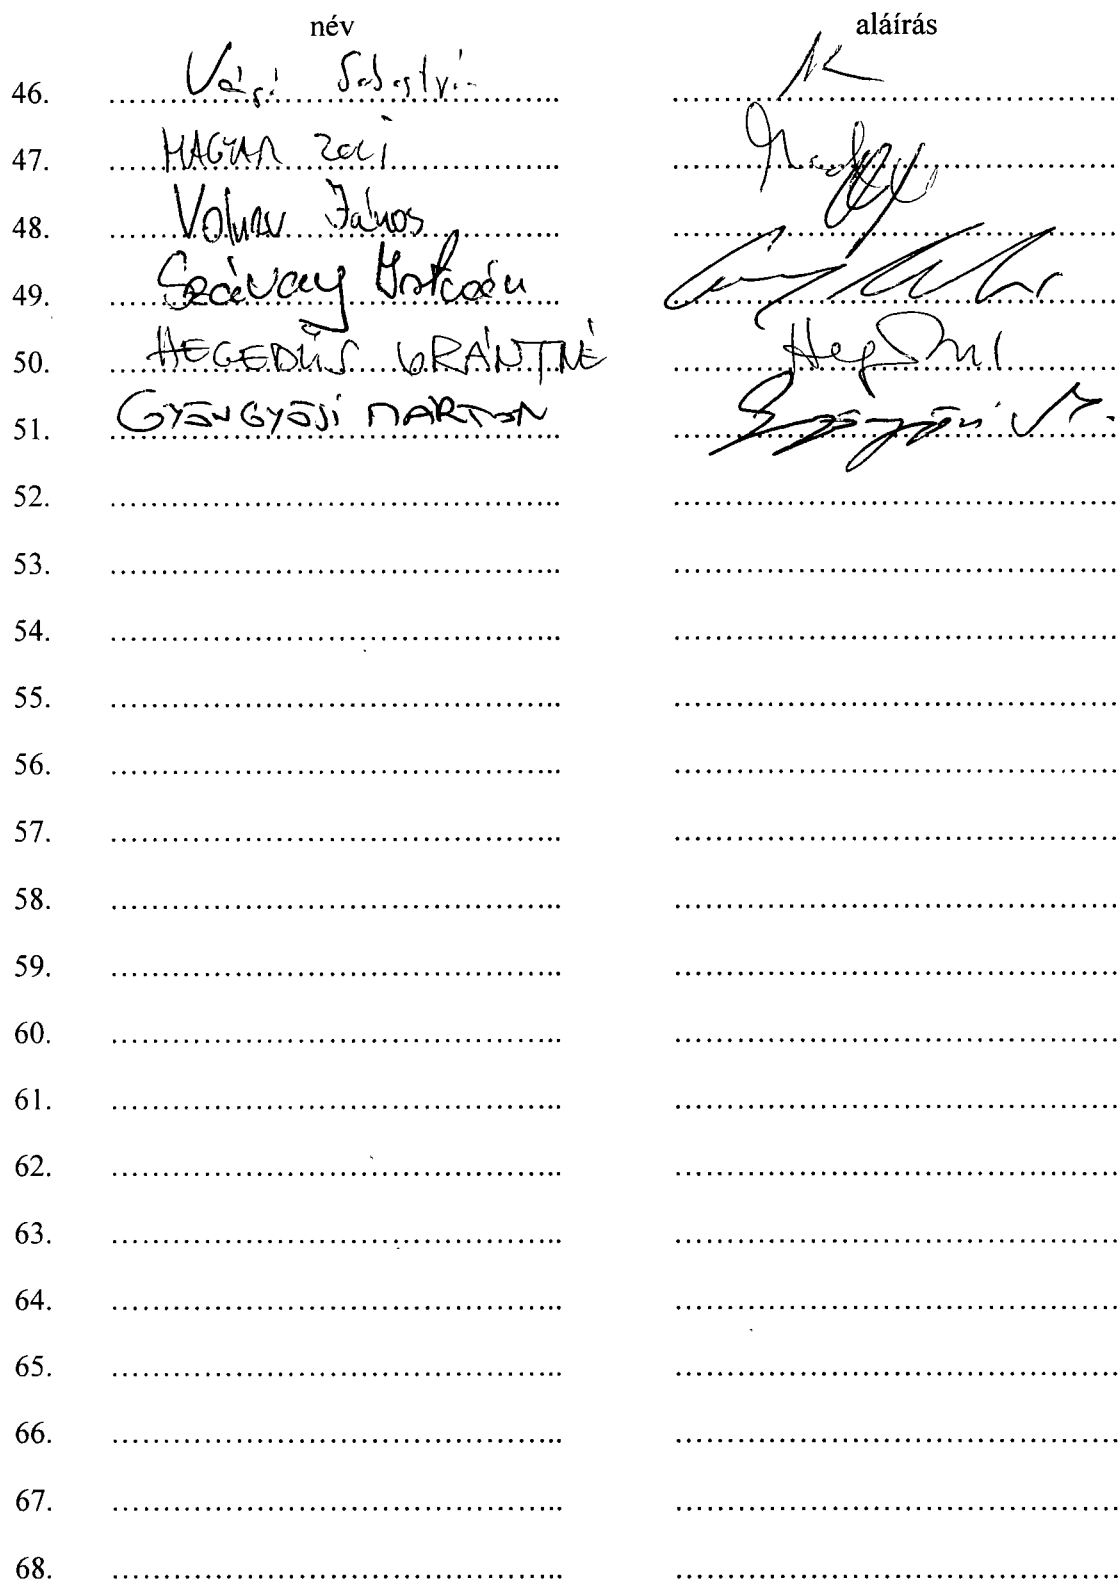 név aláírás
46.
47. MAGYAR Zoli
48. Volner János
49. Szávay István
50. HEGEDŰS LORÁNTNÉ
51. GYÖNGYÖSI MÁRTON
52.
53.
54.
55.
56.
57.
58.
59.
60.
61.
62.
63.
64.
65.
66.
67.
68.